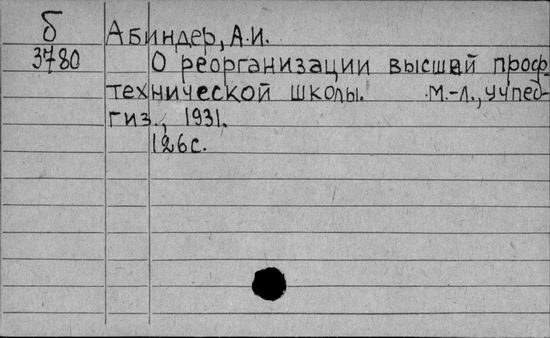 б
3780
Абиндер, А.И.
О реорганизации высшей проф-
технической школы. М.-Л., Учпед-
гиз., 1931.
126с.